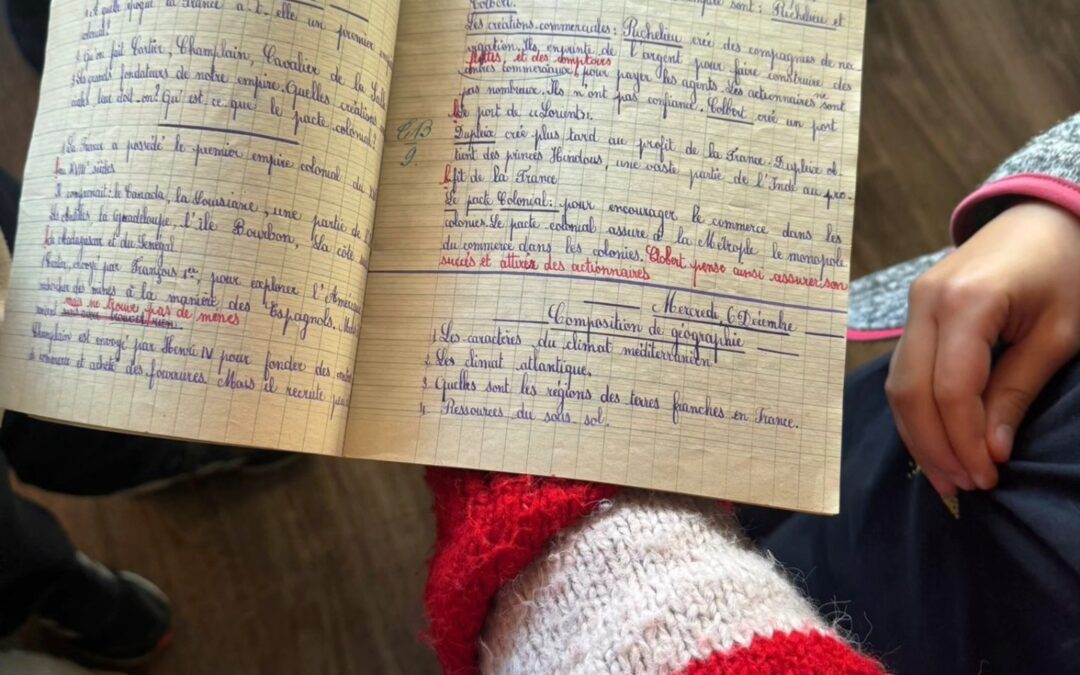 1. A quelle époque la France a-t-elle un premier
colonial?
2. Qu'on fait Cartier, Champlain, Cavalier de la Salle
3. Les grands fondateurs de notre empire. Quelles créations
leur doit-on? Qu'est ce que le pacte colonial?
1 La France a possédé le premier empire colonial du
au XVIIIe siècles
Il comprenait: le Canada, la Louisiane, une partie de
les Antilles la guadeloupe, l'île Bourbon, la côte
de Madagascar et du Sénégal
Cartier, envoyé par François 1er, pour explorer l'Amérique
rechercher des mines à la manière des Espagnols.
mais ne trouve pas de mines
Champlain est envoyé par Henri IV pour fonder des
le commerce et acheté des fourrures. Mais il recrute
sont: Richelieu et
Colbert.
Les créations commerciales: Richelieu crée des compagnies de na
vigation. Ils emprinte de l'argent pour faire construire des
flottes, et des comptoirs
centres commerciaux, pour payer les agents. Les actionnaires ne sont
pas nombreux. Ils n'ont pas confiance. Colbert crée un port
le port de "Lorient".
CB
9
Dupleix crée plus tard au profit de la France. Dupleix ob
tient des princes Hindous, une vaste partie de l'Inde au pro-
fit de la France
Le pacte Colonial: pour encourager le commerce dans les
colonies. Le pacte colonial assure à la Métrople le monopole
du commerce dans les colonies. Clobert pense ainsi assurer son
succès et attirer des actionnaires
Mercredi, 6 Décembre
Composition de géographie
1 Les caractères du climat méditerranéen.
2 Les climat atlantique.
3 Quelles sont les régions des terres franches en France.
4 Ressources du sous sol.